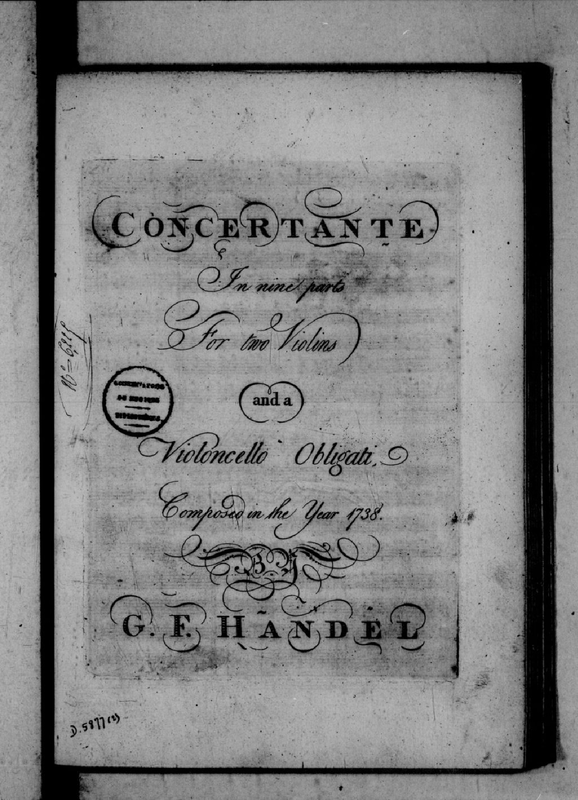 CONCERTANTE
In nine parts
For two Violins
and a
Violoncello Obligati.
Composed in the Year 1738.
BY
G. F. HANDEL
D. 5877 (2)